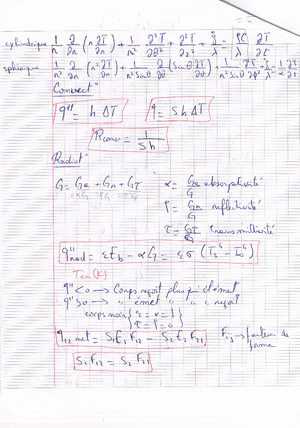 cylindrique 1/r ∂/∂r (r ∂T/∂r) + 1/r² ∂²T/∂θ² + ∂²T/∂z² + q̇/λ = ρC/λ ∂T/∂t
spherique 1/r² ∂/∂r (r² ∂T/∂r) + 1/r² Sinθ ∂/∂θ (Sinθ ∂T/∂θ) + 1/r² Sin²θ ∂²T/∂φ² + q̇/λ = 1/α ∂T/∂t
Convect°
q" = h ΔT   q = S h ΔT
R conv = 1/Sh
Radiat°
G = Ga + Gr + Gτ   α = Ga/G absorptivité
= αG + ρG + τG   ρ = Gr/G reflectivité
τ = Gτ/G transmitivité
q"rad = εEb - αG = εσ (Ts⁴ - T∞⁴)
T en (K)
q" < 0 → Corps reçoit plus q'il émet
q" > 0 → " émet " " " reçoit
corps noir { ε = α = 1
{ τ = ρ = 0
q12 net = S1 E1 F12 - S2 E2 F21   Fij → facteur de
forme
S1 F12 = S2 F21